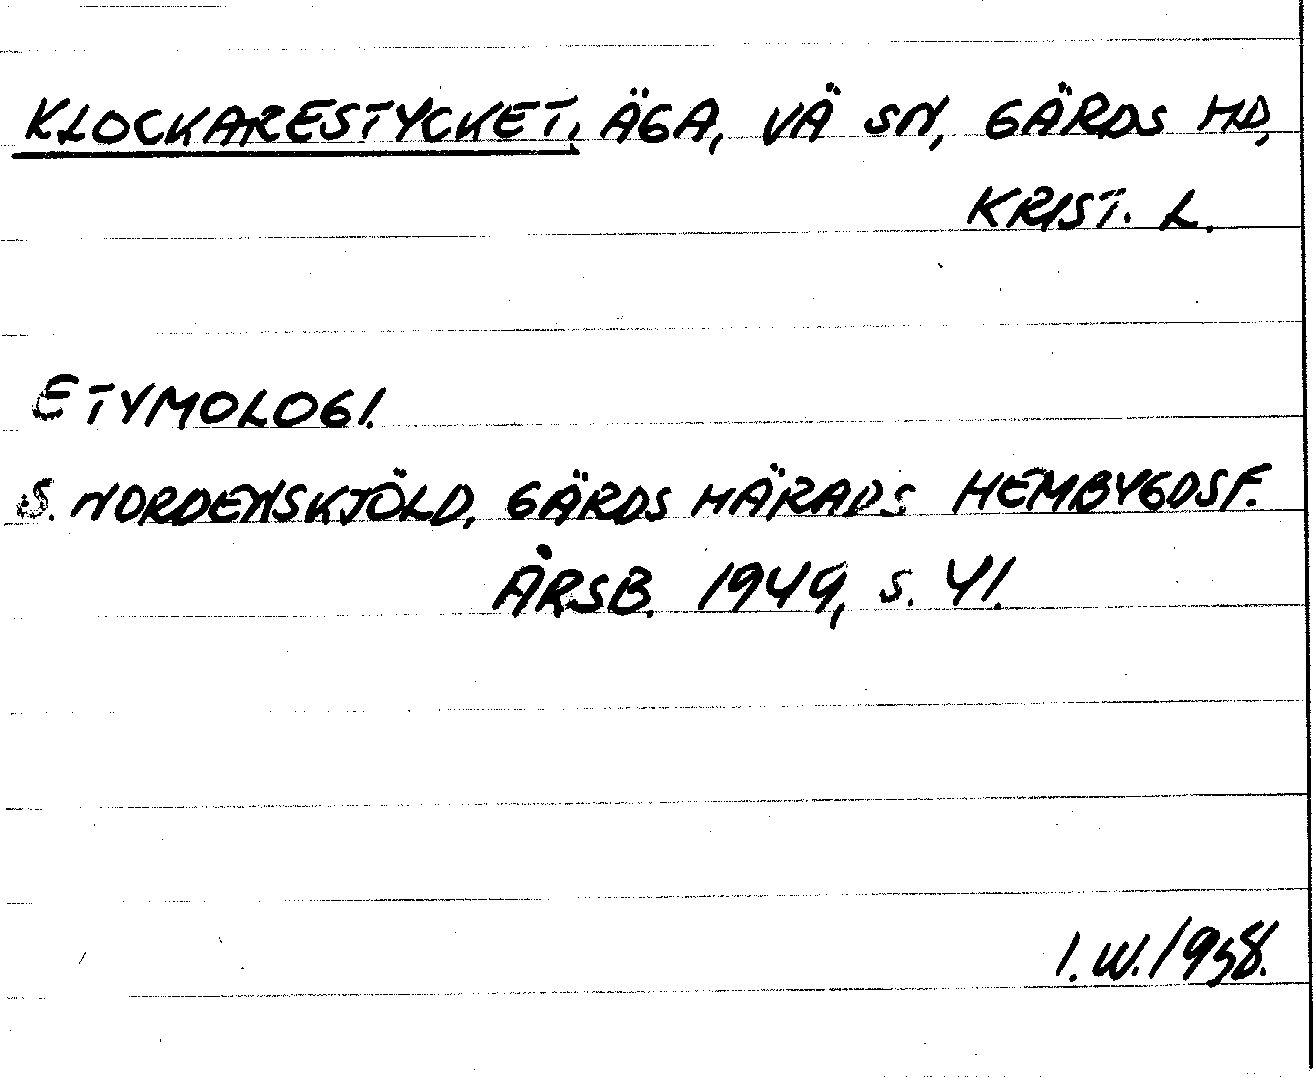 KLOCKARESTYCKET, ÄGA, VÄ SN, GÄRDS HD,
KRIST. L.
ETYMOLOGI.
S. NORDENSKJÖLD, GÄRDS HÄRADS HEMBYGDSF.
ÅRSB. 1949, S. 41.
I. W. 1958.